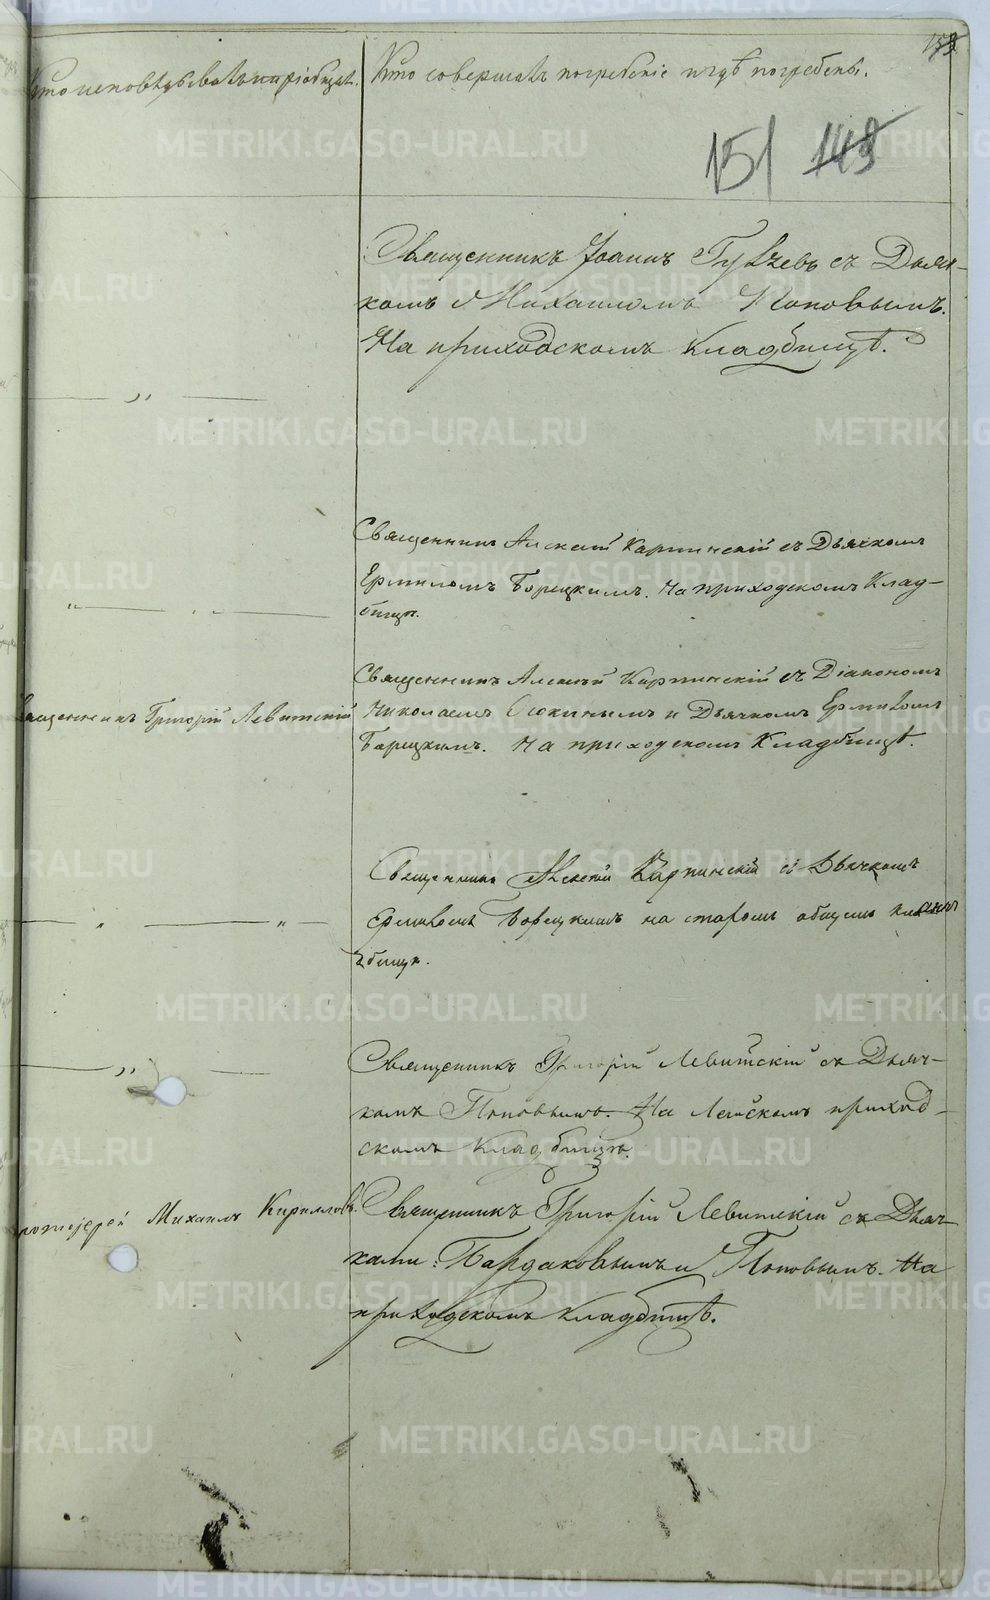 Кто исповѣдывалъ и пріобщалъ.
Кто совершалъ погребеніе и гдѣ погребены.
151 149
Священникъ Іоаннъ Гувчевъ съ Дьяч-
комъ Михаиломъ Поповымъ.
На приходскомъ кладбищѣ.
— „ —
Священникъ Алексѣй Карпинскій съ Дьячкомъ
Ермиломъ Борецкимъ. На приходскомъ Клад-
бищѣ.
„ — „ —
Священникъ Алексѣй Карпинскій съ Діакономъ
Священникъ Григорій Левитскій
Николаемъ и Дьячкомъ Ермиломъ
Борецкимъ. На приходскомъ Кладбищѣ.
Священникъ Алексѣй Карпинскій съ Дьячкомъ
Ермиломъ Борецкимъ на старомъ общемъ клад
бищѣ.
— „ — „
Священникъ Григорій Левитскій съ Дьяч-
— „ —
комъ Поповымъ. На приход-
скомъ Кладбищѣ.
Протоіерей Михаилъ Кирилловъ.
Священникъ Григорій Левитскій съ Дьяч-
ками: Бардаковымъ и Поповымъ. На
приходскомъ кладбищѣ.
METRIKI.GASO-URAL.RU